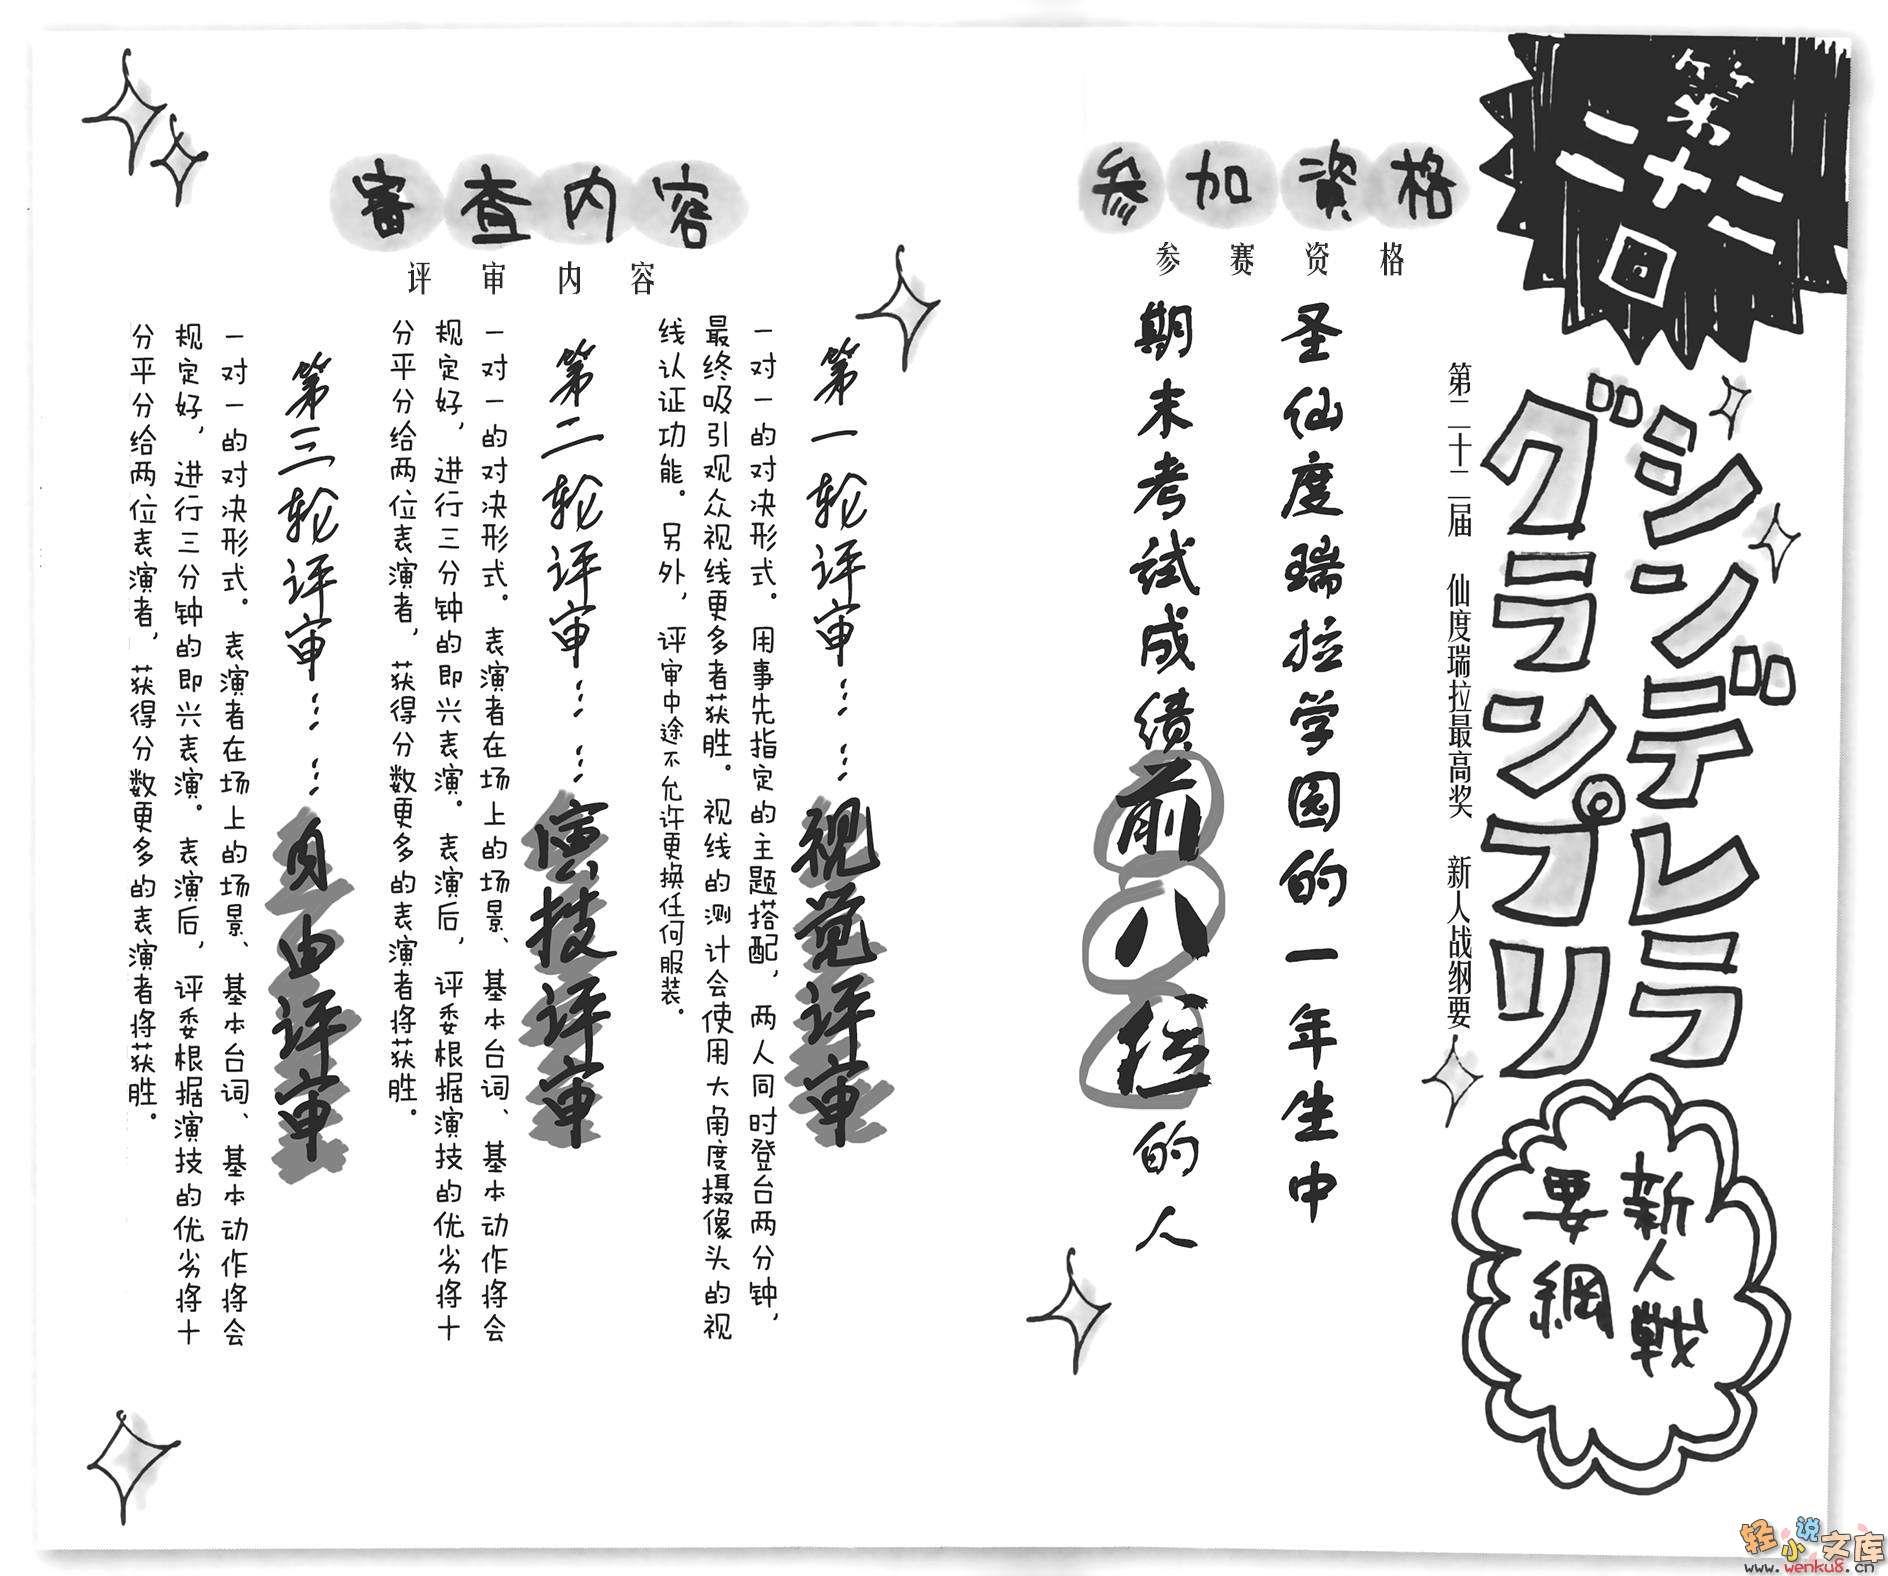 第二十二回
シンデレラ
グランプリ
新人戦
要綱
第二十二届　仙度瑞拉最高奖　新人战纲要
参加資格
参赛资格
圣仙度瑞拉学园的一年生中
期末考试成绩前八位的人
審査内容
评审内容
第一轮评审……视觉评审
一对一的对决形式。用事先指定的主题搭配，两人同时登台两分钟，
最终吸引观众视线更多者获胜。视线的测计会使用大角度摄像头的视
线认证功能。另外，评审中途不允许更换任何服装。
第二轮评审……演技评审
一对一的对决形式。表演者在场上的场景、基本台词、基本动作将会
规定好，进行三分钟的即兴表演。表演后，评委根据演技的优劣将十
分平分给两位表演者，获得分数更多的表演者将获胜。
第三轮评审……自由评审
一对一的对决形式。表演者在场上的场景、基本台词、基本动作将会
规定好，进行三分钟的即兴表演。表演后，评委根据演技的优劣将十
分平分给两位表演者，获得分数更多的表演者将获胜。
轻小说文库
www.wenku8.cn